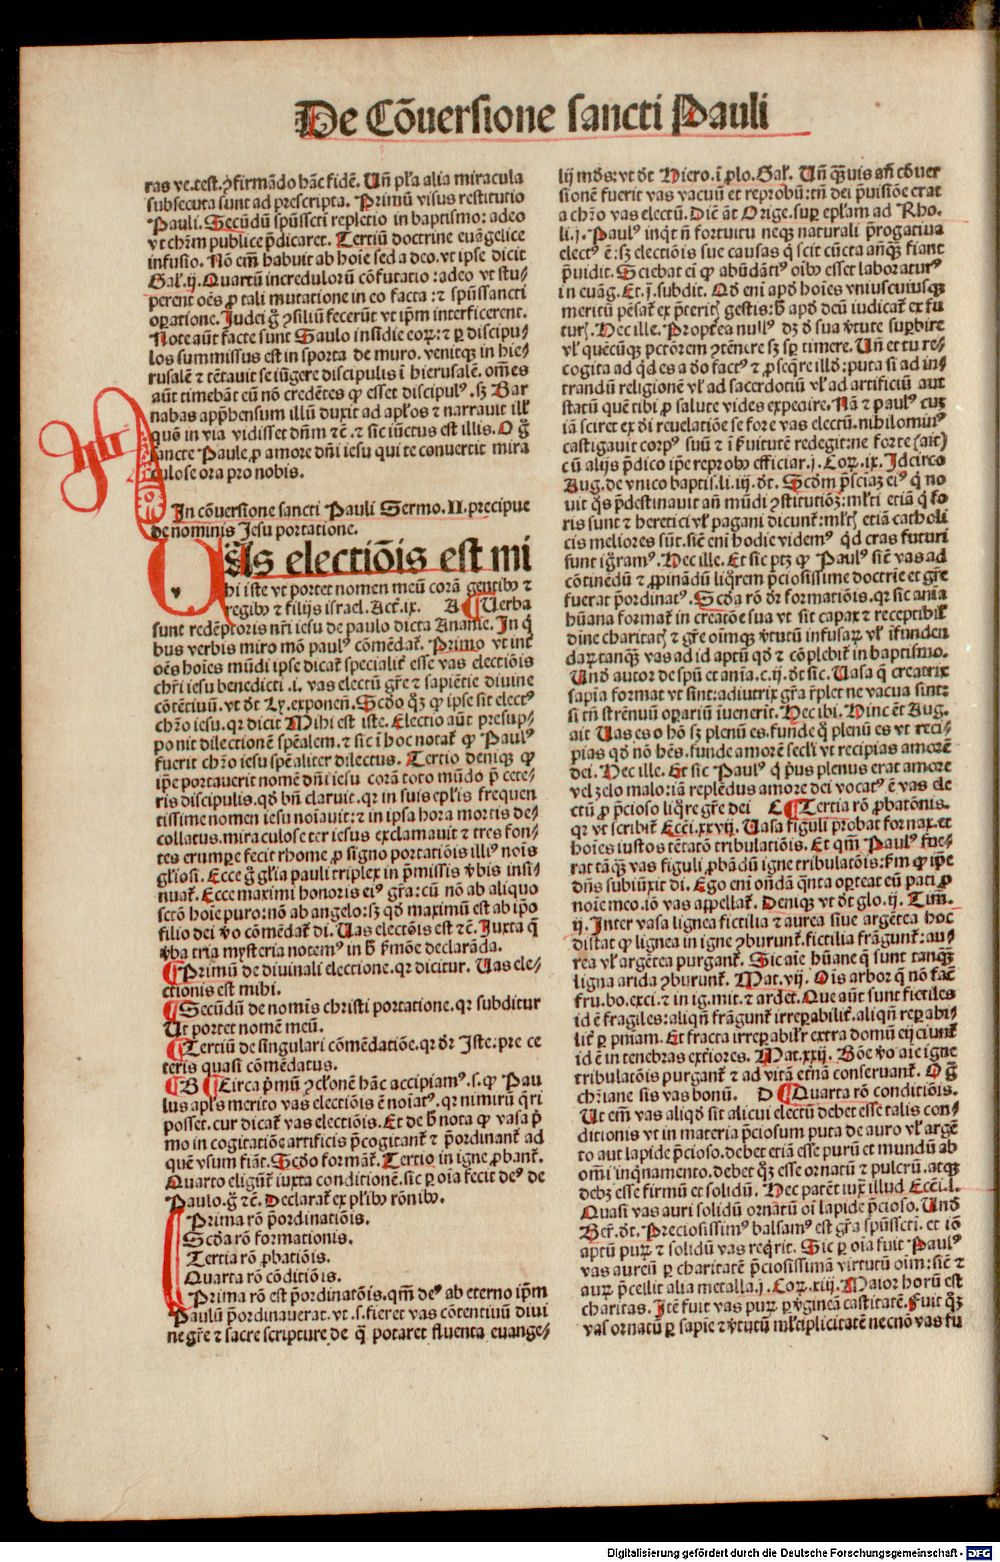 De Cõuersione sancti Pauli
ras ve.test.ꝯfirmãdo hãc fidẽ. Uñ pl'a alia miracula
subsecuta sunt ad prescripta. Primũ visus restitutio
Pauli. Secũdũ spũsscti repletio in baptismo: adeo
vt chr̃m publice p̃dicaret. Tertiũ doctrine euãgelice
infusio. Nõ em̃ habuit ab hoie sed a deo. vt ipse dicit
Gal'.ij. Quartũ incredulorũ cõfutatio : adeo vt stu/
perent oẽs ꝓ tali mutatione in eo facta : ⁊ spũssancti
oꝑatione. Iudei g̃ ꝯsiliũ fecerũt vt ip̃m interficerent.
Note aũt facte sunt Saulo insidie eoꝝ: ⁊ ꝑ discipu/
los summissus est in sporta de muro. venitqꝫ in hie/
rusalẽ ⁊ tẽtauit se iũgere discipulis ĩ hierusalẽ. om̃es
aũt timebãt eũ nõ credẽtes ꝙ esset discipulꝰ. sꝫ Bar
nabas app̃hensum illũ duxit ad apl'os ⁊ narrauit ill'
quõ in via vidisset dñm ⁊c̃. ⁊ sic iũctus est illis. O g̃
sancte Paule ꝓ amore dñi iesu qui te conuertit mira
culose ora pro nobis.
In cõuersione sancti Pauli Sermo.II.precipue
de nominis Jesu portatione.
UAs electiõis est mi
hi iste vt portet nomen meũ corã gentibꝰ ⁊
regibꝰ ⁊ filijs israel. Act̃.ix. A Uerba
sunt redẽptoris nr̃i iesu de paulo dicta Ananie. In q̃
bus verbis miro mõ paulꝰ cõmẽdat̃. Primo vt int̃
oẽs hoies mũdi ipse dicat̃ specialit̃ esse vas electiõis
chr̃i iesu benedicti .i. vas electũ gr̃e ⁊ sapiẽtie diuine
cõtẽtiuũ. vt dt̃ Ly. exponeñ. Scd̃o qꝫ ꝙ ipse sit electꝰ
chr̃o iesu. qr dicit Mihi est iste. Electio aũt presup/
ponit dilectionem sp̃ealem. ⁊ sic ĩ hoc notat̃ ꝙ Paulꝰ
fuerit chr̃o iesu sp̃ealiter dilectus. Tertio deniqꝫ ꝙ
ip̃e portauerit nomẽ dñi iesu corã toto mũdo p̃ cete/
ris discipulis. qd̃ bñ claruit. qr in suis ep̃lis frequen
tissime nomen iesu noĩauit: ⁊ in ipsa hora mortis de/
collatus. miraculose ter iesus exclamauit ⁊ tres fon/
tes erumpe fecit rhome ꝓ signo portatiõis illiꝰ noĩs
gl'iosi. Ecce g̃ gl'ia pauli triplex in p̃missis ṽbis insi/
nuat̃. Ecce maximi honoris eiꝰ gr̃a: cũ nõ ab aliquo
sctõ hoie puro: nõ ab angelo: sꝫ qd̃ maximũ est ab ip̃o
filio dei ṽo cõmẽdat̃ di. Uas electõis est ⁊c̃. Iuxta q̃
ṽba tria mysteria notemꝰ in h̃ ẜmõe declarãda.
Primũ de diuinali electione. qr dicitur. Uas ele/
ctionis est mihi.
Secũdũ de nomĩs christi portatione. qr subditur
Ut portet nomẽ meũ.
Tertiũ de singulari cõmẽdatiõe. qr dr̃ Iste: pre ce
teris quasi cõmẽdatus.
B Circa p̃mũ ꝯclõnẽ hãc accipiamꝰ .s. ꝙ Pau
lus apl's merito vas electiõis ẽ noĩatꝰ. qr nimirũ q̃ri
posset. cur dicat̃ vas electiõis. Et de h̃ nota ꝙ vasa p̃
mo in cogitatiõe artificis p̃cogitant̃ ⁊ p̃ordinant̃ ad
quẽ vsum fiãt. Scd̃o format̃. Tertio in igne ꝓbant̃.
Quarto eligũt̃ iuxta conditionẽ. sic ꝑ oĩa fecit deꝰ de
Paulo. g̃ ⁊c̃. Declarat̃ ex pl'ibꝰ rõnibꝰ.
Prima rõ p̃ordinatiõis.
Scd̃a rõ formationis.
Tertia rõ ꝓbatiõis.
Quarta rõ cõditiõis.
Prima rõ est p̃ordinatõis. qm̃ deꝰ ab eterno ip̃m
Paulũ p̃ordinauerat. vt .s. fieret vas cõtentiuũ diui
ne gr̃e ⁊ sacre scripture de q̃ potaret fluenta euange/
lij mr̃ds: vt dt̃ Hiero.ĩ plo. Gal'. Uñ q̃uis añ cõuer
sionẽ fuerit vas vacuũ et reprobũ: tñ dei p̃uisiõe erat
a chr̃o vas electũ. Diẽ ãt Orige. suꝑ epl'am ad Rho.
li.j. Paulꝰ inqt̃ ñ fortuitu neqꝫ naturali p̃rogatiua
electꝰ ẽ: sꝫ electiõis sue causas q̃ scit cũcta añq̃ fiant
p̃uidit. Sciebat eĩ ꝙ abũdãtiꝰ oĩbꝰ esset laboraturꝰ
in euãg. Et.j. subdit. Qd̃ eni apd̃ hoies vniuscuiusqꝫ
meritũ pẽsat̃ ex p̃teritꝭ gestis: h̃ apd̃ deũ iudicat̃ ex fu
turꝭ. Hec ille. Propt̃ea nullꝰ dꝫ d̃ sua ṽtute suꝑbire
vl' quẽcũqꝫ pctõrem ꝯtẽnere sꝫ sꝑ timere. Uñ et tu re/
cogita ad qd̃ es a do factꝰ ⁊ ꝓseq̃re illd̃: puta si ad in/
trandũ religionẽ vl' ad sacerdotiũ vl' ad artificiũ aut
statũ quẽ tibi ꝓ salute vides expedire. Nã ⁊ paulꝰ cuꝫ
iã sciret ex di reuelatiõe se fore vas electũ. nihilominꝰ
castigauit corpꝰ suũ ⁊ ĩ ẜuitutẽ redegit: ne forte (ait)
cũ alijs p̃dico ip̃e reprobꝰ efficiar.j. Coꝝ.ix. Idcirco
Aug. de vnico baptis.li.iij.dt̃. Scd̃m p̃sciaꝫ eiꝰ q̃ no
uit q̃s p̃destinauit añ mũdi ꝯstitutiõꝫ: ml'ti etiã q̃ fo
ris sunt ⁊ heretici vl' pagani dicunt̃: ml'tꝭ etiã catholi
cis meliores sũt. siẽ eni hodie videmꝰ qd̃ cras futuri
sunt ig̃ramꝰ. Hec ille. Et sic ptꝫ ꝙ Paulꝰ siẽ vas ad
cõtinẽdũ ⁊ ꝓpinãdũ liq̃rem p̃ciosissime doctrie et gr̃e
fuerat p̃ordinatꝰ. Scd̃a rõ dr̃ formatiõis. qr sic anĩa
hũana format̃ in creatõe sua vt sit capax ⁊ receptibil'
diue charitatꝭ ⁊ gr̃e oĩmqꝫ ṽtutũ infusaꝝ vl' ĩfunden
daꝝ. tanq̃ vas ad id aptũ qd̃ ⁊ cõplebit̃ in baptismo.
Und̃ autor de spũ et anĩa.c.ij.dt̃ sic. Uasa q̃ creatrix
sapĩa format vt sint: adiutrix gr̃a ĩplet ne vacua sint:
si tñ strẽnuũ oꝑariũ ĩuenerit. Hec ibi. Hinc ẽt Aug.
ait Uas es o hõ sꝫ plenũ es. funde q̃ plenũ es vt reci/
pias qd̃ nõ hẽs. funde amorẽ secl'i vt recipias amorẽ
dei. Hec ille. Et sic Paulꝰ q̃ p̃us plenus erat amore
vel zelo malo: iã replẽdus amore dei vocatꝰ ẽ vas ele
ctũ ꝓ p̃cioso liq̃re gr̃e dei C Tertia rõ ꝓbatõnis.
qr vt scribit̃ Ecc̃i.xxvij. Uasa figuli ꝓbat fornax. et
hoĩes iustos tẽtatõ tribulatiõis. Et qm̃ Paulꝰ fue/
rat tãq̃ vas figuli ꝓbãdũ igne tribulatõis: ẜm ꝙ ip̃e
dñs subiũxit di. Ego eni oñdã q̃nta oꝑteat eũ pati ꝓ
noĩe meo. iõ vas appellat̃. Deniqꝫ vt dt̃ glo.ij. Tim̃.
ij. Inter vasa lignea fictilia ⁊ aurea siue argẽtea hoc
distat ꝙ lignea in igne ꝯburunt̃. fictilia frãgunt̃: au/
rea vl' argẽtea purgant̃. Sic aĩe hũane q̃ sunt tanq̃
ligna arida ꝯburunt̃. Mat.vij. Oĩs arbor q̃ nõ fac̃
fru.bo.exci.⁊ in ig.mit.⁊ ardet. Que aũt sunt fictiles
id ẽ fragiles: aliqñ frãgunt̃ irreꝑabilit̃. aliqñ reꝑabi/
lit̃ ꝑ pñiam. Et fracta irreꝑabil'r extra domũ eijciunt̃
id ẽ in tenebras ext̃iores. Mat.xxij. Bõe ṽo aĩe igne
tribulatõis purgant̃ ⁊ ad vitã et̃nã conseruant̃. O g̃
chr̃iane sis vas bonũ. D Quarta rõ conditiõis.
Ut em̃ vas aliqd̃ sit alicui electũ debet esse talis con/
ditionis vt in materia p̃ciosum puta de auro vl' argẽ
to aut lapide p̃cioso. debet etiã esse purũ et mundũ ab
om̃i inq̃namento. debet qꝫ esse ornatũ ⁊ pulcrũ. atqꝫ
debꝫ esse firmũ et solidũ. Hec patẽt iux̃ illud Ecc̃i.l.
Quasi vas auri solidũ ornatũ oĩ lapide p̃cioso. Und̃
Ber̃.dt̃. Preciosissimꝰ balsamꝰ est gr̃a spũsscti. et iõ
aptũ puꝝ ⁊ solidũ vas req̃rit. Sic ꝑ oĩa fuit Paulꝰ
vas aureũ ꝑ charitatẽ p̃ciosissimã virtutũ oĩm: siẽ ⁊
auꝝ p̃cellit alia metalla.j. Coꝝ.xiij. Maior horũ est
charitas. Itẽ fuit vas puꝝ ꝑ ṽgineã castitatẽ. Fuit qꝫ
vas ornatũ ꝑ sapĩe ⁊ ṽtutũ ml'tiplicitatẽ necnõ vas fu
Digitalisierung gefördert durch die Deutsche Forschungsgemeinschaft - DFG